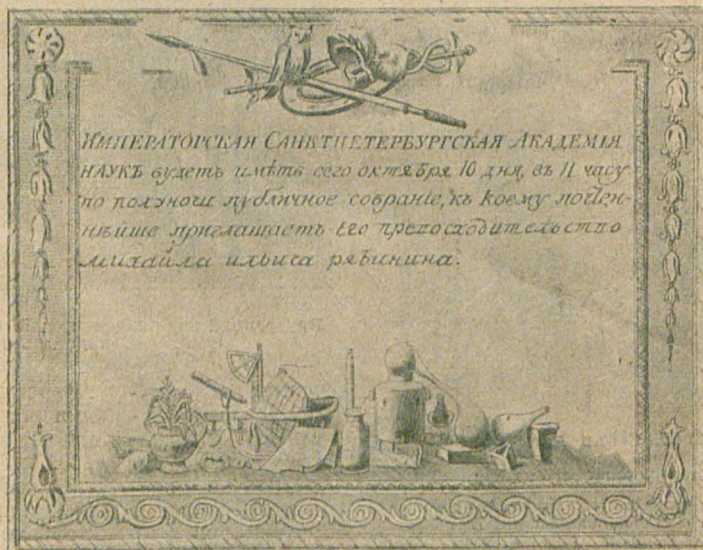 ИМПЕРАТОРСКАЯ САНКТПЕТЕРБУРГСКАЯ АКАДЕМІЯ
НАУКЪ будетъ имѣть сего октября 10 дня, въ 11 часу
по полуночи публичное собраніе, къ коему почтен-
нѣйше приглашаетъ Его превосходительство
михайла ильича рябинина.